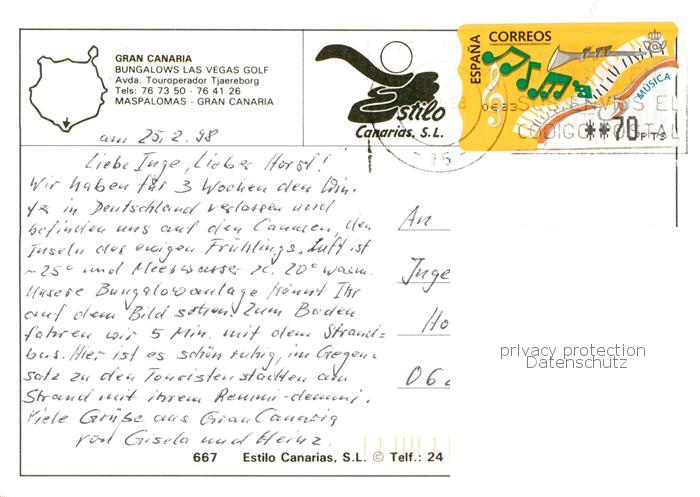 GRAN CANARIA
BUNGALOWS LAS VEGAS GOLF
Avda. Touroperador Tjaereborg
Tels: 76 73 50 - 76 41 26
MASPALOMAS - GRAN CANARIA
Estilo
Canarias, S.L.
ESPAÑA
CORREOS
MUSICA
**70 PTS
CODIGO POSTAL
- 75 -
am 25.2.98
Liebe Inge, Lieber Horst!
Wir haben für 3 Wochen den Win-
ter in Deutschland verlassen und
befinden uns auf den Canaren, den
Inseln des ewigen Frühlings. Luft ist
~25° und Meerwasser ca. 20° warm.
Unsere Bungalowanlage könnt Ihr
auf dem Bild sehen. Zum Baden
fahren wir 5 Min. mit dem Strand=
bus. Hier ist es schön ruhig, im Gegen-
satz zu den Touristenstädten am
Strand mit ihrem Remmi-demmi.
Viele Grüße aus Gran Canaria
von Gisela und Heinz.
An
Inge
Ho
06
privacy protection
Datenschutz
667 Estilo Canarias, S.L. © Telf.: 24